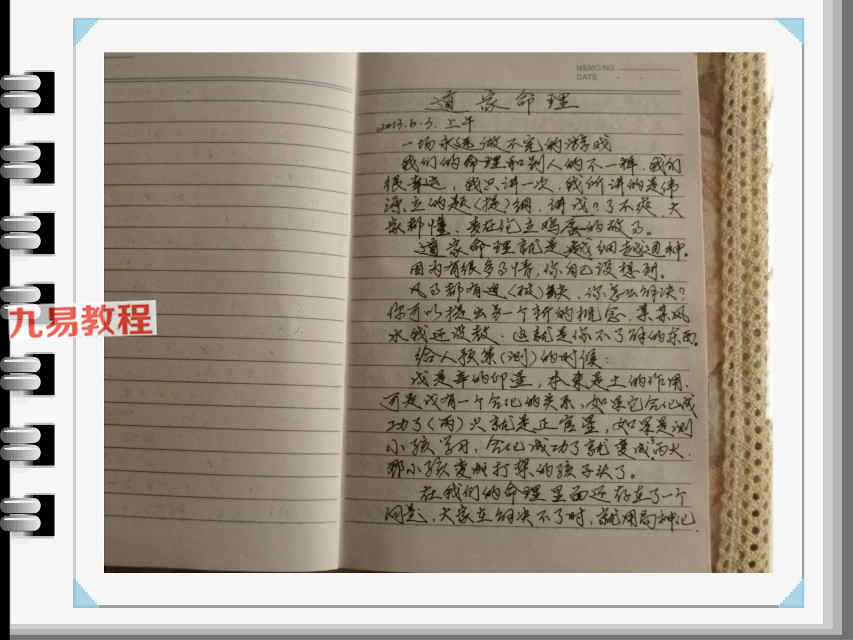 MEMO NO.
DATE
道家命理
2013.6.3.上午
一场永远做不完的游戏
我们的命理和别人的不一样，我们
很幸运，我只讲一次，我所讲的是伟
立的题（提）纲，讲戊？了不疑，大
家都懂，贵在鸡蛋的故了。
道家命理就是越细越通神。
因为有很多了情，你自己没想到。
风了都有（极）缺，你怎么解决？
你可以提出另一个新的概念，某某风
水我还没教，这就是你不了解的东西。
给人预策（测）的时候：
戊是辛的印星，本来是土的作用，
可是戊有一个合化的关系，如果它合化成
功了（丙）火就是正官星，如果是测
小孩学习，合化成功了就变成丙火，
那小孩变成打架的孩子头了。
在我们的命理里面还存在了一个
问题，大家在解决不了时，就用局神化
九易教程